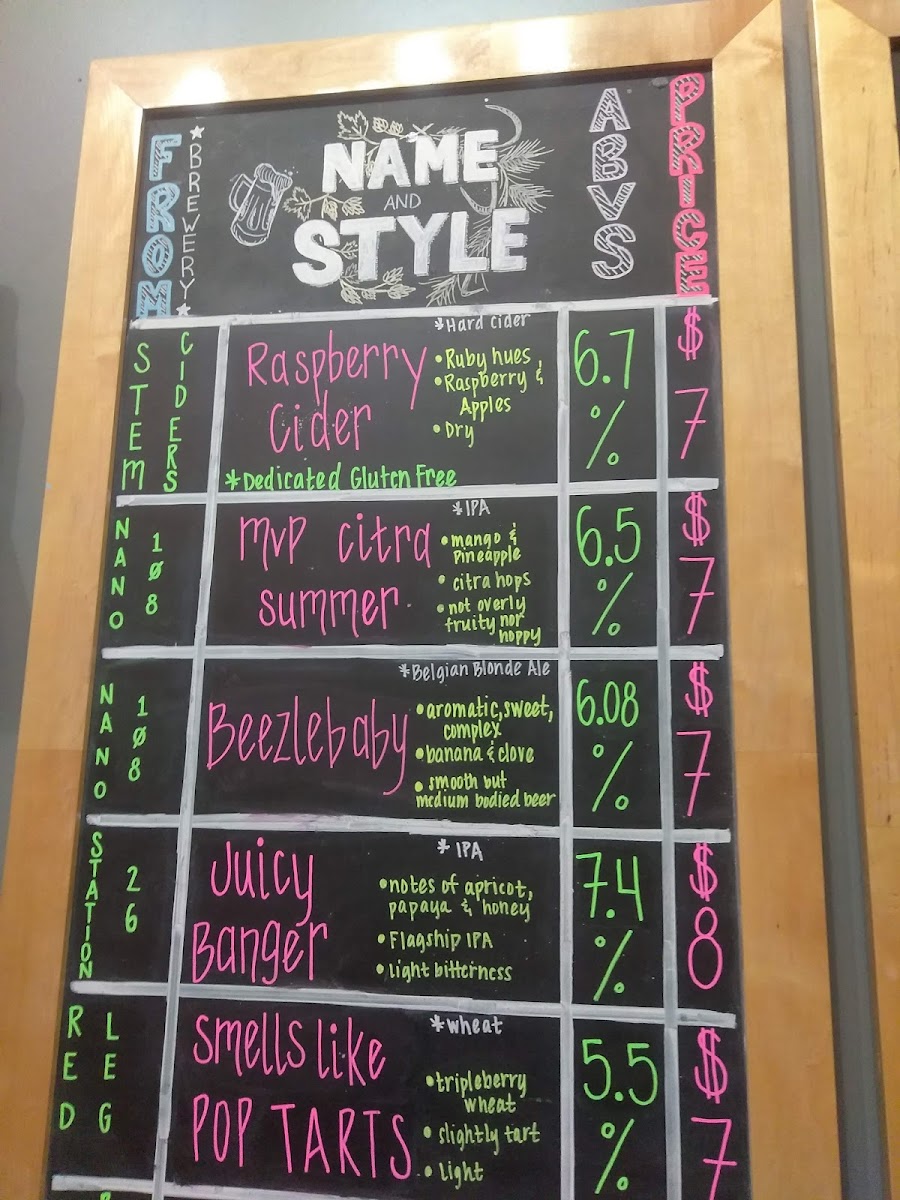 FROM
★BREWERY★
NAME
AND
STYLE
ABVS
PRICE
STEM
CIDERS
Raspberry
Cider
*Hard cider
•Ruby hues,
•Raspberry &
Apples
•Dry
*Dedicated Gluten Free
6.7
%
$
7
NANO
1Ø8
MVP citra
summer
*IPA
•mango &
Pineapple
•citra hops
•not overly
fruity nor
hoppy
6.5
%
$
7
NANO
1Ø8
Beezlebaby
*Belgian Blonde Ale
•aromatic,sweet,
complex
•banana & clove
•smooth but
medium bodied beer
6.08
%
$
7
STATION
26
Juicy
Banger
*IPA
•notes of apricot,
papaya & honey
•Flagship IPA
•light bitterness
7.4
%
$
8
RED
LEG
Smells like
POP TARTS
*wheat
•tripleberry
wheat
•slightly tart
•light
5.5
%
$
7